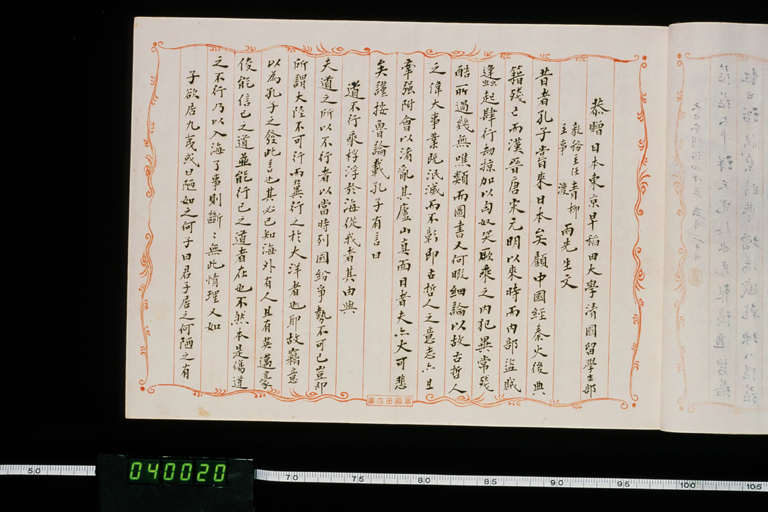 恭贈日本東京早稻田大學清國留學生部
教務主任青柳
主事 渡
兩先生文
昔者孔子嘗來日本矣顧中國經秦火後典
籍殘亡而漢晉唐宋元明以來時而内部盜賊
蜂起肆行劫掠加以匈奴突厥乘之内犯異常殘
酷所過幾無唯類而圖書又何暇細論以故古哲人
之偉大事業既泯滅而不彰即古哲人之意志亦且
牽强附會以淆亂其廬山真面目者夫亦大可悲
矣謹按魯論載孔子有言曰
道不行乘桴浮於海從我者其由與
夫道之所以不行者以當時列國紛爭勢不可已豈即
所謂大陸不可行而冀行之於大洋者也耶故竊意
以為孔子之發此言也其必已知海外有人且有英邁豪
俊能信己之道並能行己之道者在也不然本是傷道
之不行乃以入海了事則斷斷無此情理又如
子欲居九夷或曰陋如之何子曰君子居之何陋之有
040020
50
70
75
80
85
90
95
100
105